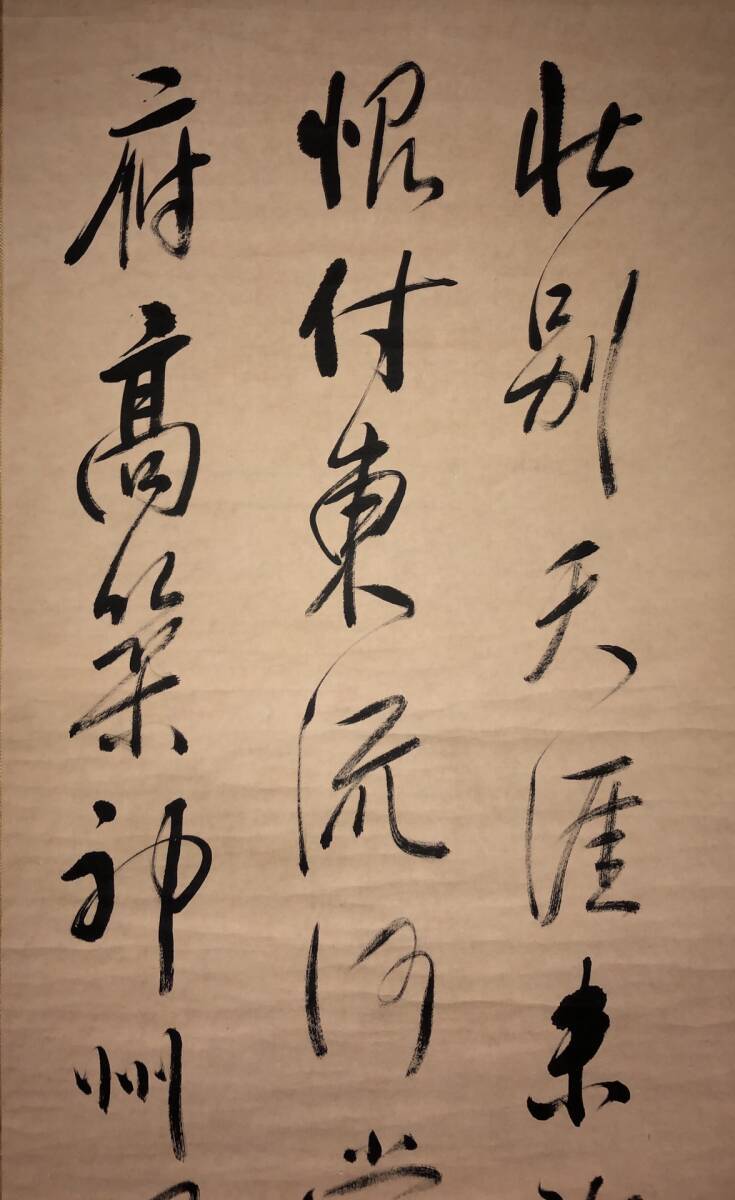 壮別天涯未
恨付東流何當
府高築神州